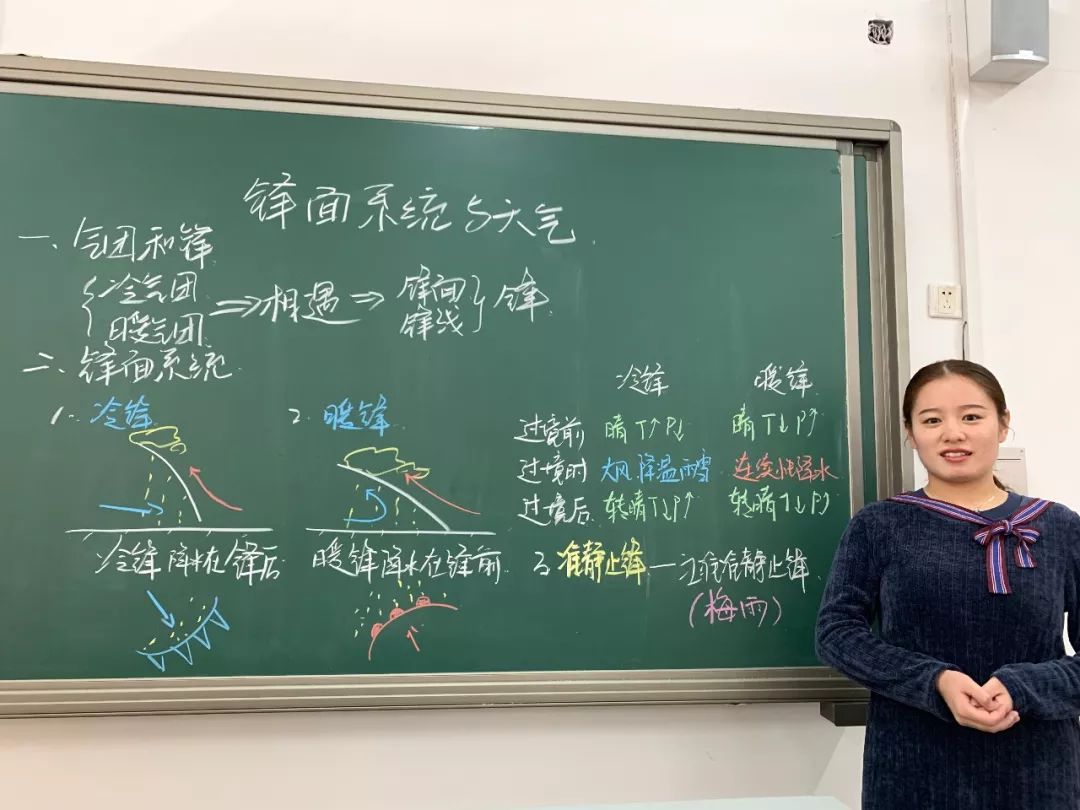 锋面系统与天气
一、气团和锋
{冷气团
暖气团 ⇒相遇⇒ 锋面
锋线}锋
二、锋面系统
1. 冷锋
2. 暖锋
冷锋 暖锋
过境前 晴 T↑P↓ 晴 T↓P↑
过境时 大风 降温 雨雪 连续性降水
过境后 转晴 T↓P↑ 转晴
冷锋降水在锋后
暖锋降水在锋前
3 准静止锋—江淮准静止锋
(梅雨)